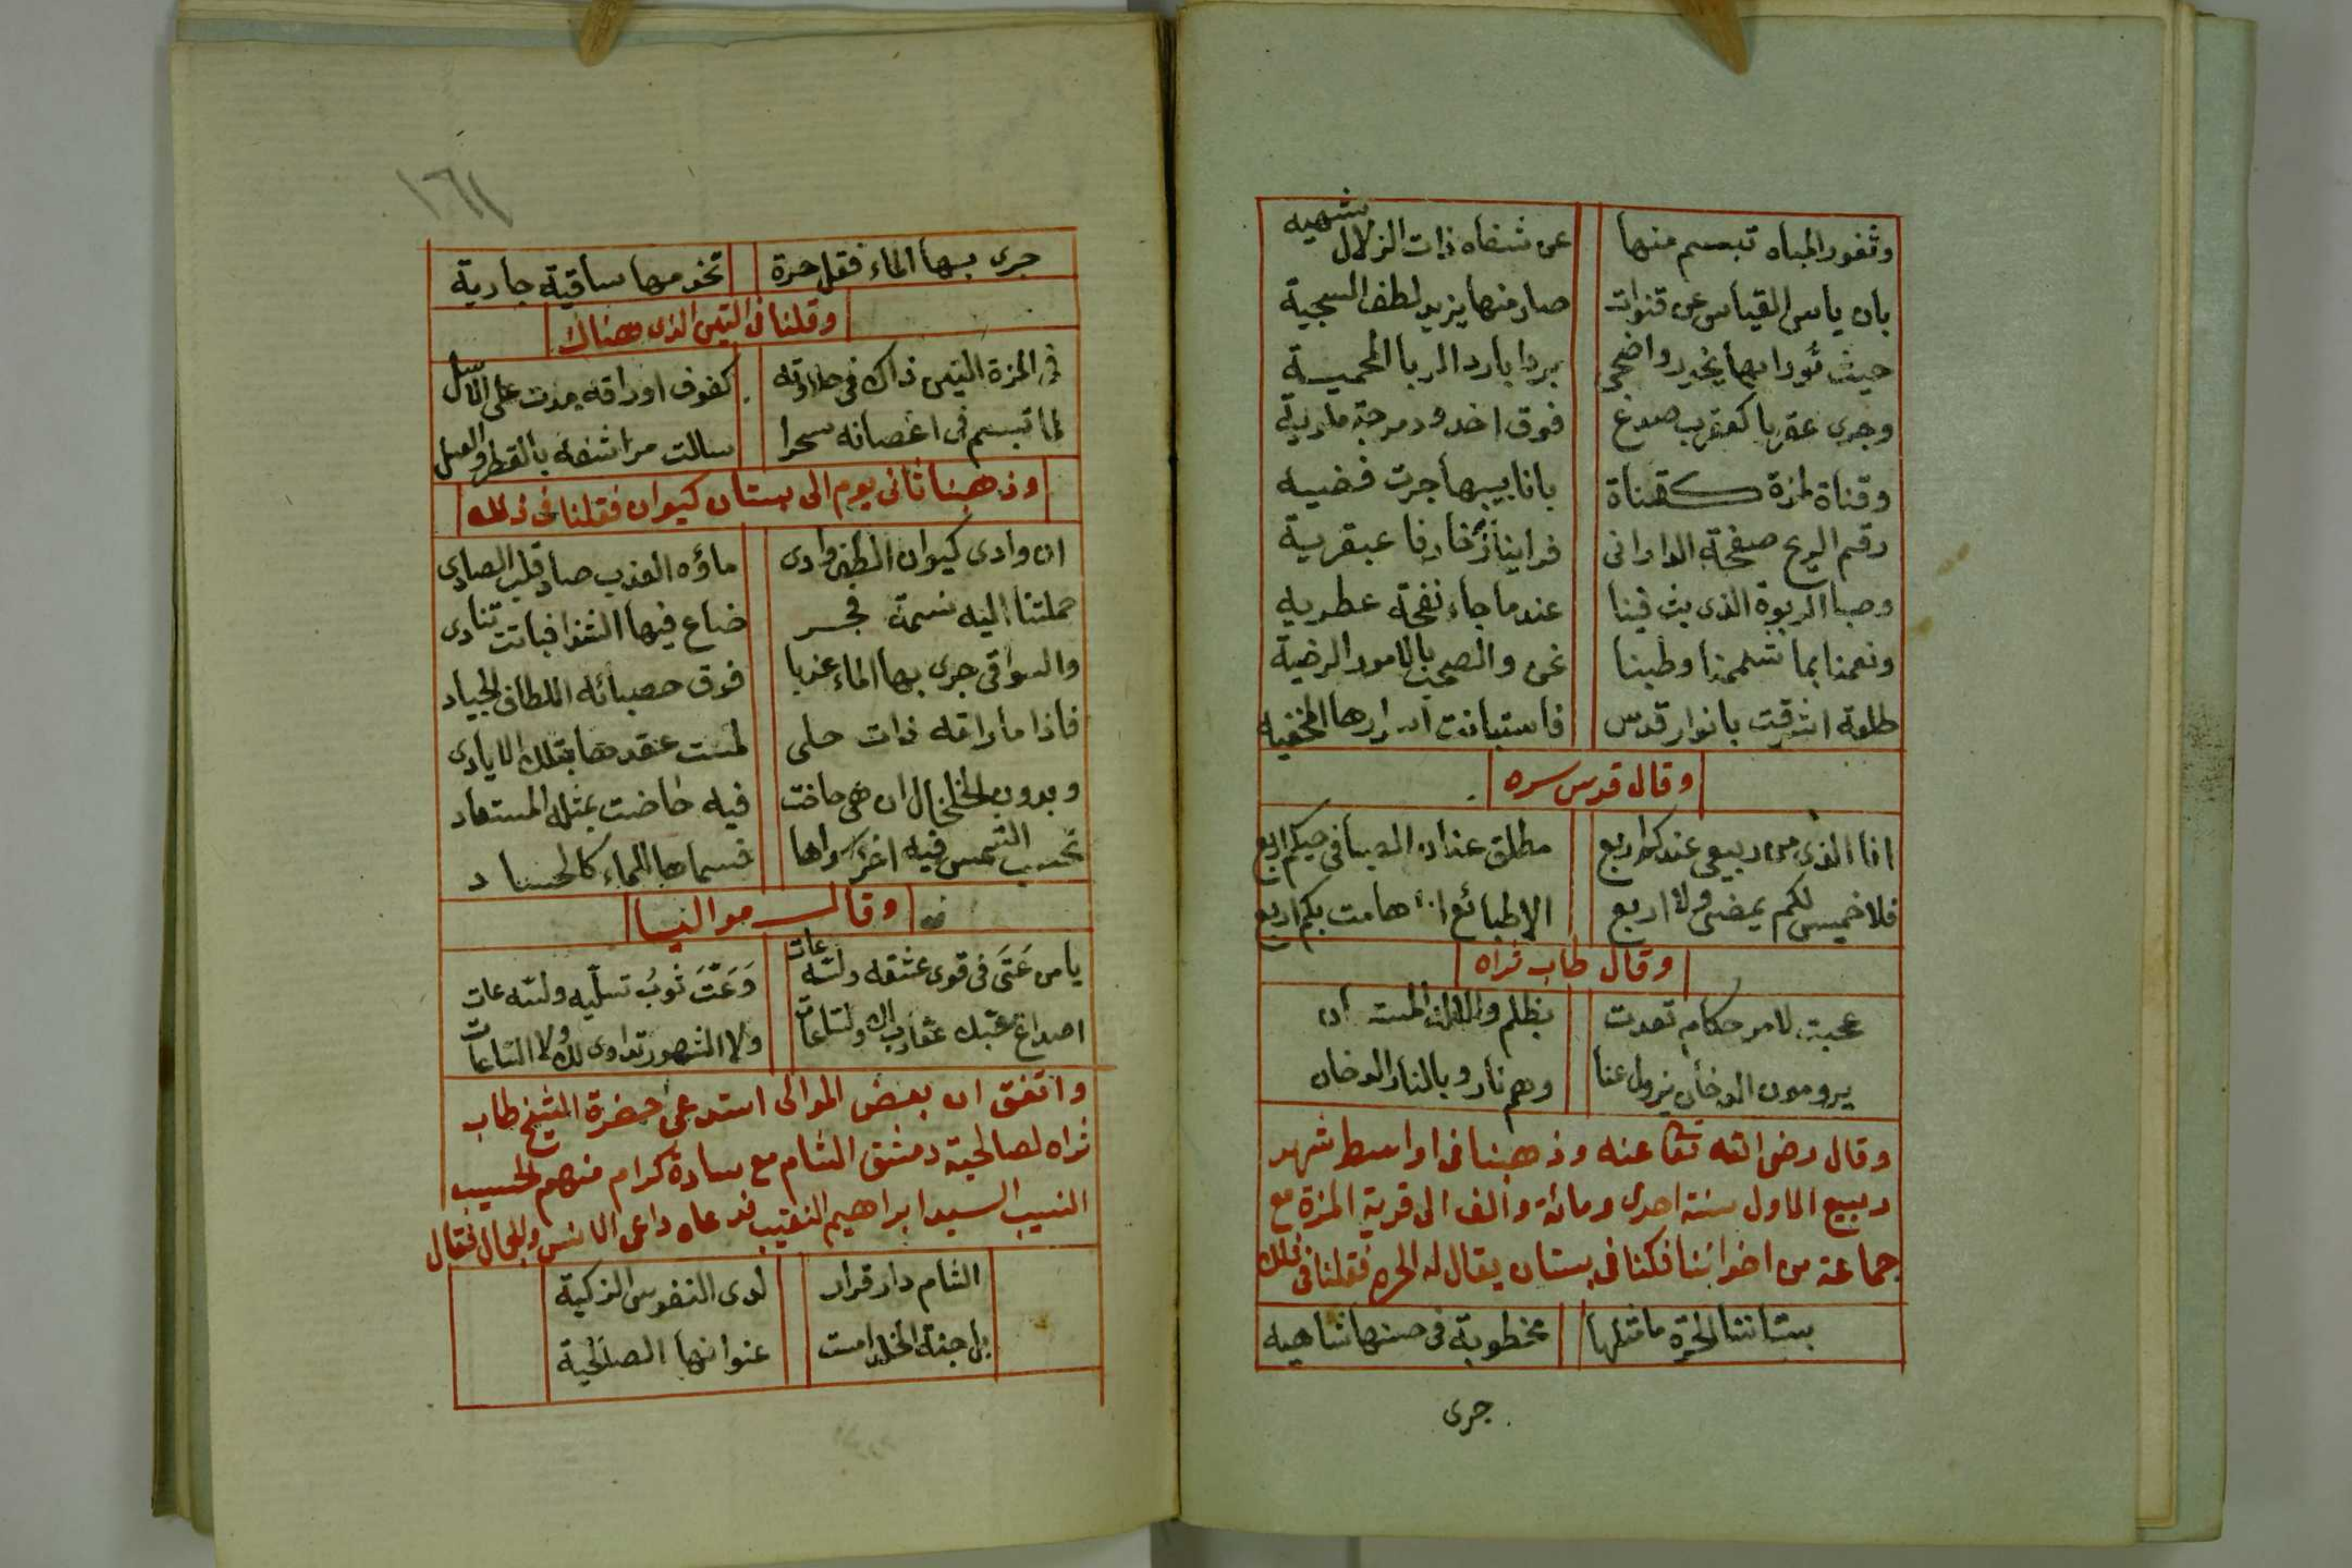 وثغور المياه تبسم منها عن شفاه ذات الزلال شهيه
بان ياس القياس عن قنوات صار منها يزيد لطف السجية
حيث ثورا بها يخور واضحى بردا بارد الربا المحمية
وجرى عقربا كعقرب صدغ فوق اخدود مرجة
وقناة لمزة كقناة بانابيبها جرت فضيه
رقم الريح صفحة الداراني فراينا زخارفا عبقرية
وصبا الربوة الذى بث فينا عندما جاء نفحة عطريه
ونعمنا بما شممنا وطبنا نحن والصحب بالامور الرضية
طلعة اشرقت بانوار قدس فاستبانت اسرارها المخفيه
وقال قدس سره
انا الذى من ربيعى عندكم اربع مطلق عنان الصبا فى حيكم اربع
فلا خميس لكم يمضى ولا اربع الا طبائع انا هامت بكم اربع
وقال طاب ثراه
عجبت لامر حكام تعدت بظلم والملك المسته ان
يرومون الدخان يزول عنا وهم نار وبالنار الدخان
وقال رضى الله تعا عنه وذهبنا فى اواسط شهر
ربيع الاول سنة احدى ومائة والف الى قرية المزة مع
جماعة من اخواننا فكنا فى بستان يقال له الحره فقلنا فى ذلك
بستاننا الحرة ما مثلها مخطوبة فى حسنها شاهيه
جرى
١٦١
جرى بها الماء فقل حرة تخدمها ساقية جارية
وقلنا فى التين الذى هناك
فى المزة التين ذاك فى حلاوته كفوف اوراقه مدت على الاسل
لما تبسم فى اغصانه سحرا سالت مراشفه بالقطر والعسل
وذهبنا ثانى يوم الى بستان كيوان فقلنا فى ذلك
ان وادى كيوان الطف وادى ماؤه العذب صاد قلب الصادى
حملتنا اليه نسمة فجر ضاع فيها الشذا فباتت تنادى
والسواقى جرى بها الماء عذبا فوق حصبائه اللطاف الجياد
فاذا ما راقه ذات حلى لمست عقدها بتلك الايادى
وبدون الخلخال ان هى خاضت فيه خاضت بمثله المستعاد
تحسب الشمس فيه اذ سواها قسماها الماء كالحساد
وقال مواليا
يا من عَتَى فى قوى عشقه ولسّه عات وَعَتّ ثوب تسلّيه ولسّه عات
اصداغ عتبك عقارب لك ولسّاعات ولا الشهور تداوى لك ولا السّاعات
واتفق ان بعض الموالى استدعى حضرة الشيخ طاب
ثراه لصالحية دمشق الشام مع سادة كرام منهم الحسيب
النسيب السيد ابراهيم النقيب فدعاه داعى الانس والحال فقال
الشام دار قرار لدى النفوس الزكية
بل جنة الخلد امست عنوانها الصالحية